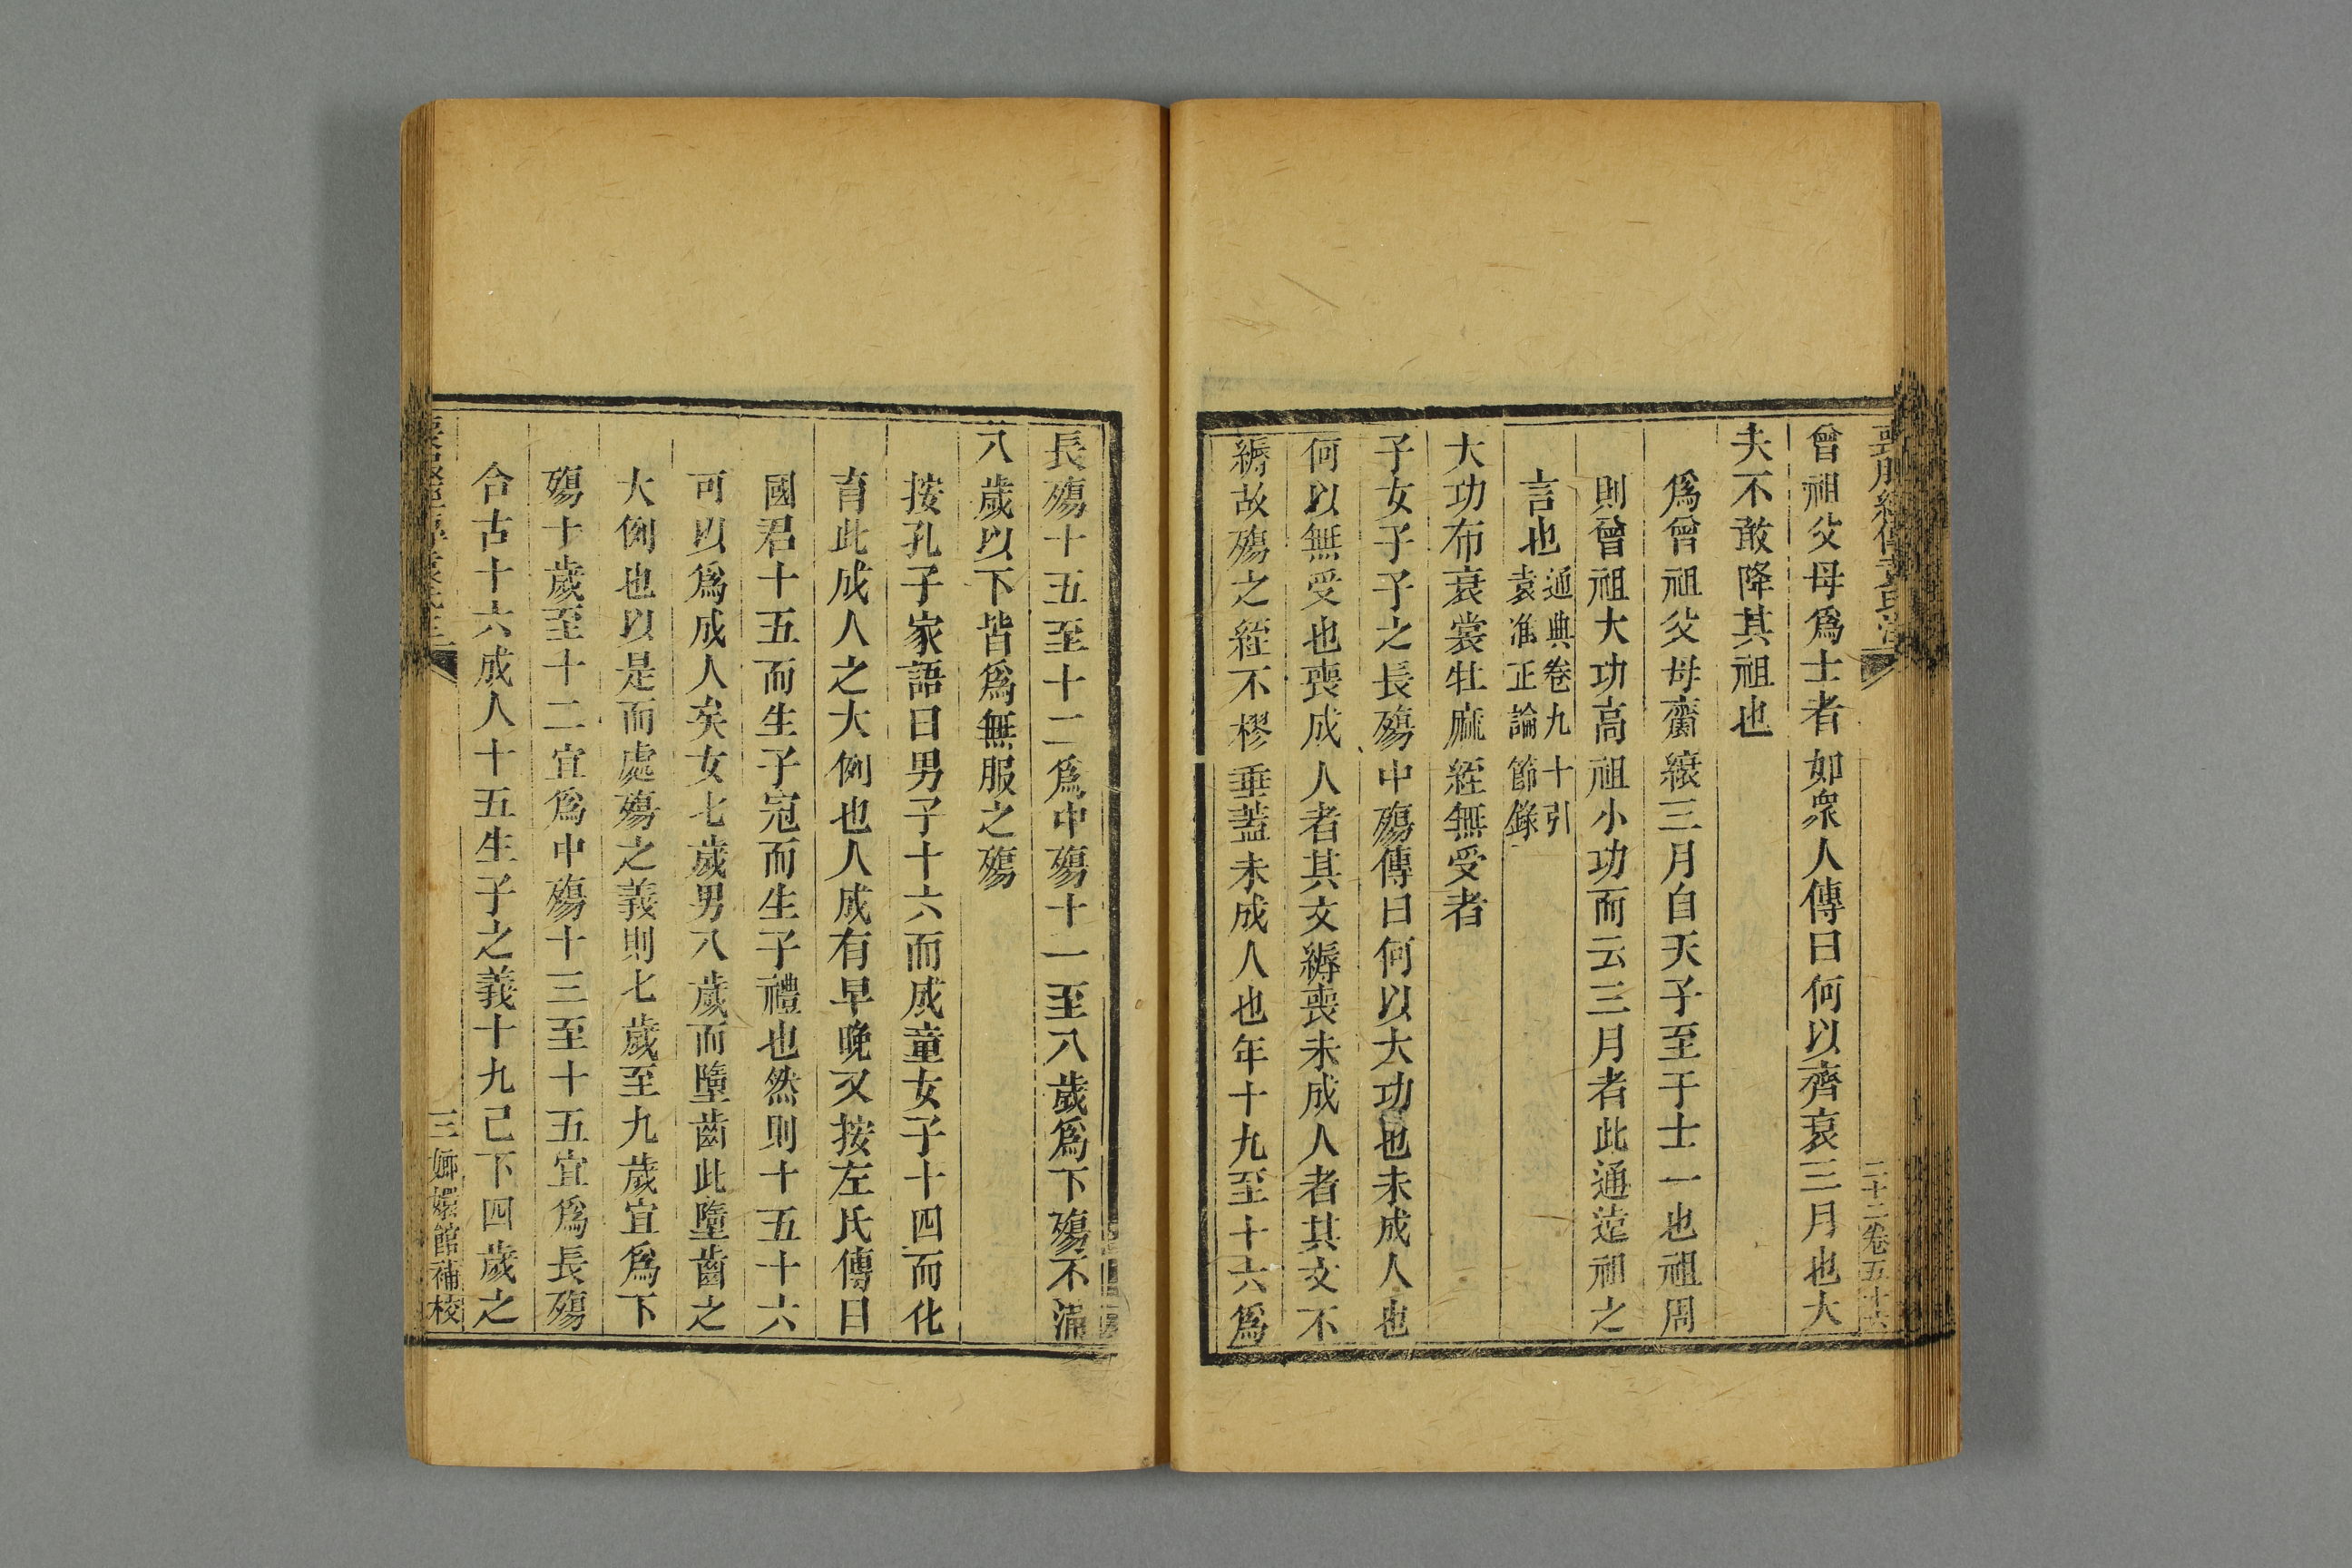 曾祖父母爲士者如衆人傳曰何以齊衰三月也大
夫不敢降其祖也
爲曾祖父母齋縗三月自天子至于士一也祖周
則曾祖大功高祖小功而云三月者此通遠祖之
言也通典卷九十引
袁准正論節錄
大功布衰裳牡麻絰無受者
子女子子之長殤中殤傳曰何以大功也未成人也
何以無受也喪成人者其文縟喪未成人者其文不
縟故殤之絰不樛垂蓋未成人也年十九至十六爲
長殤十五至十二爲中殤十一至八歲爲下殤不滿
八歲以下皆爲無服之殤
按孔子家語曰男子十六而成童女子十四而化
育此成人之大例也人成有早晚又按左氏傳曰
國君十五而生子冠而生子禮也然則十五十六
可以爲成人矣女七歲男八歲而墮齒此墮齒之
大例也以是而處殤之義則七歲至九歲宜爲下
殤十歲至十二宜爲中殤十三至十五宜爲長殤
合古十六成人十五生子之義十九己下四歲之
三 嫏嬛館補校